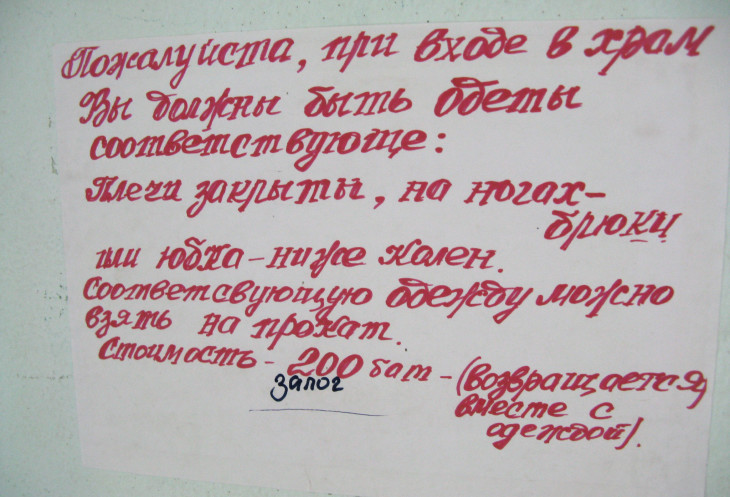 Пожалуйста, при входе в храм
Вы должны быть одеты
соответствующе:
Плечи закрыты, на ногах-
брюки
или юбка - ниже колен.
Соответсвующую одежду можно
взять на прокат.
Стоимость - 200 бат - (возвращается,
залог
вместе с
одеждой).